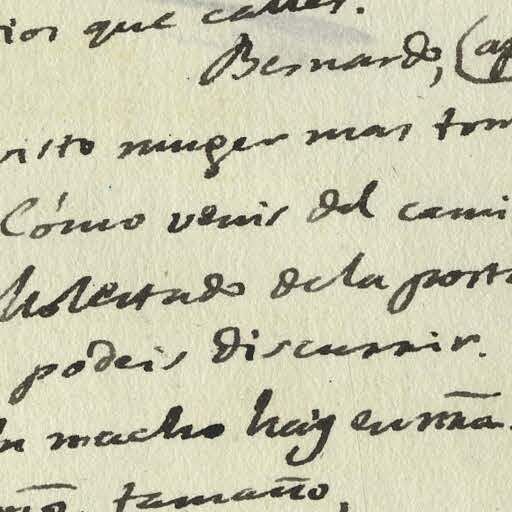 que calleis.
Bernardo, (ap
visto muger mas ton
Cómo venis del cami
Molestado de la posta
podeis discurrir.
mucho hay en nr̃a
tamaño,